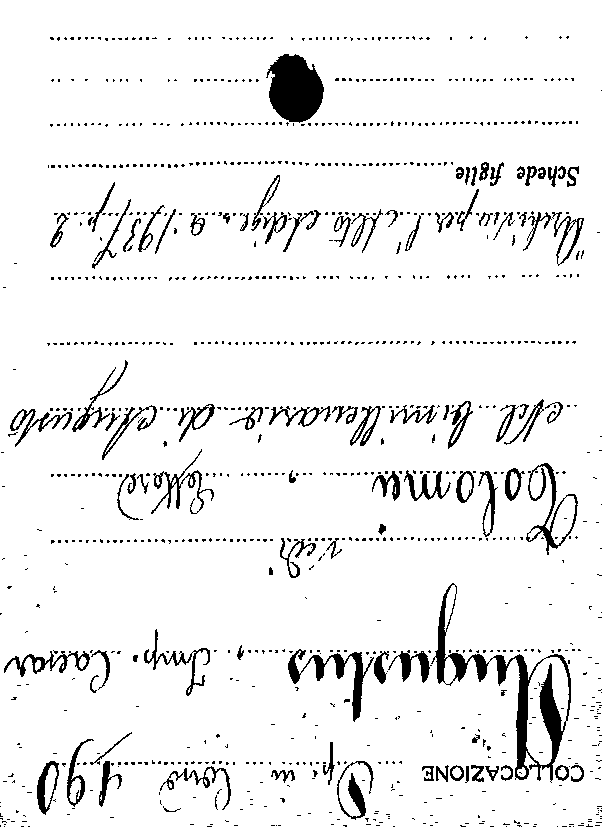 COLLOCAZIONE Op. in Cons 190
Augustus, Imp. Caesar
vedi
Tolomei, Ettore
Nel bimillenario di Augusto
"Archivio per l'Alto Adige" a. 1937 p. 2
Schede figlie